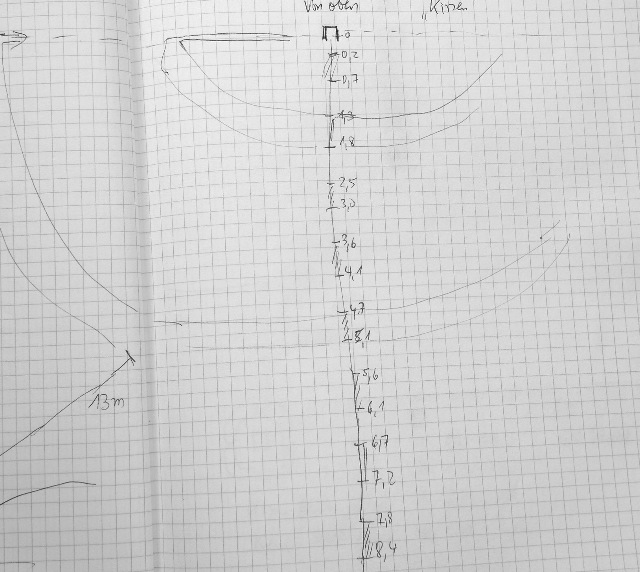 Von oben
0
0,2
0,7
1,3
1,8
2,5
3,0
3,6
4,1
4,7
5,1
5,6
6,1
6,7
7,2
7,8
8,4
13m